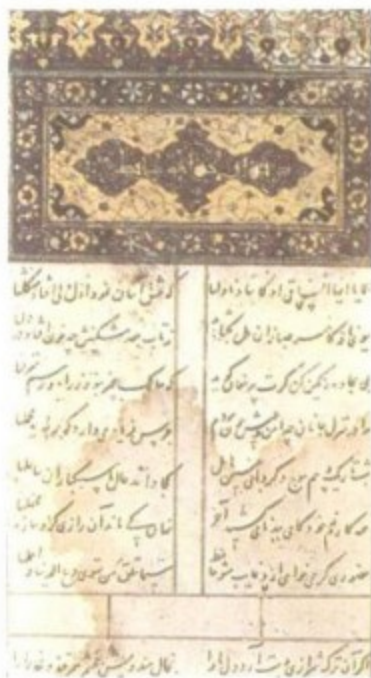 الا یا ایها الساقی ادر کاسا و ناولها که عشق آسان نمود اول ولی افتاد مشکلها
ببوی نافه کاخر صبا زان طره بگشاید ز تاب جعد مشکینش چه خون افتاد در دلها
بمی سجاده رنگین کن گرت پیر مغان گوید که سالک بی خبر نبود ز راه و رسم منزلها
مرا در منزل جانان چه امن عیش چون هر دم جرس فریاد می دارد که بربندید محملها
شب تاریک و بیم موج و گردابی چنین هایل کجا دانند حال ما سبکباران ساحلها
همه کارم ز خود کامی ببدنامی کشید آخر نهان کی ماند آن رازی کزو سازند محفلها
حضوری گر همی خواهی ازو غایب مشو حافظ متی ما تلق من تهوی دع الدنیا و اهملها
اگر آن ترک شیرازی بدست آرد دل ما را بخال هندویش بخشم سمرقند و بخارا را